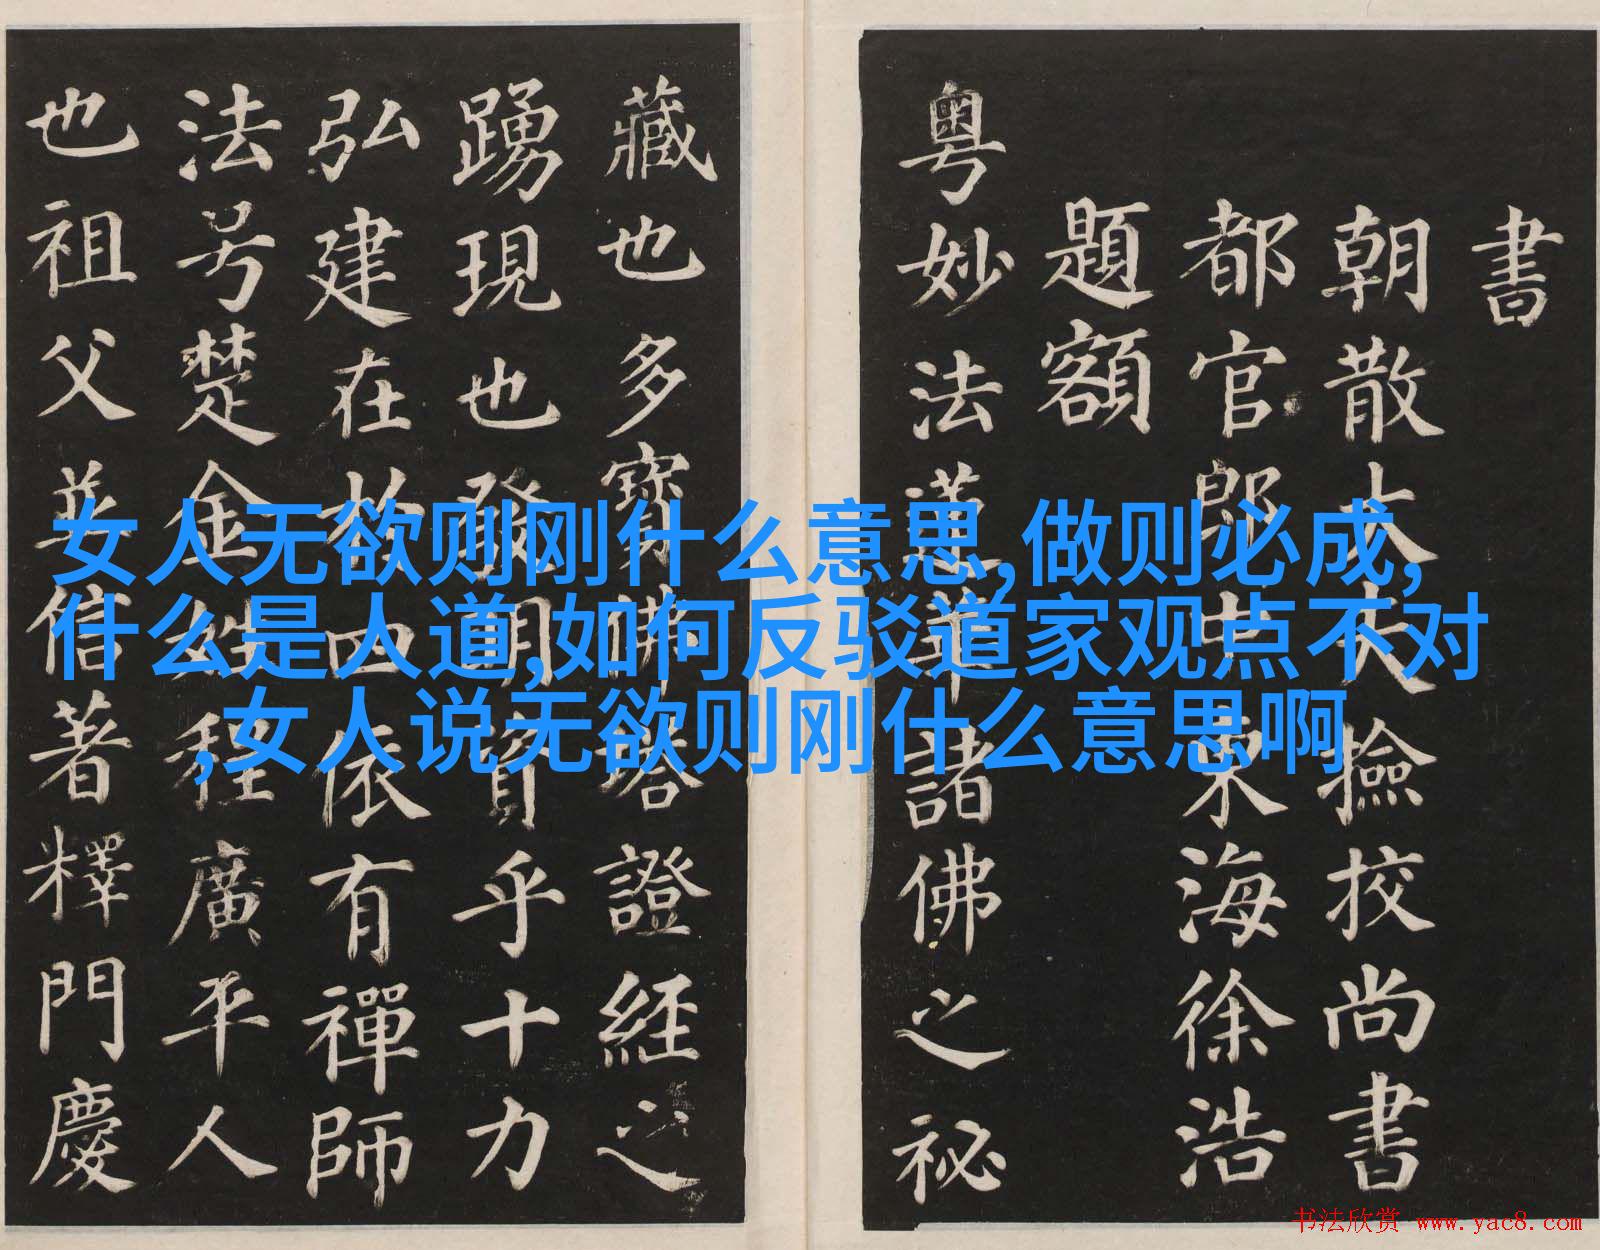 書
朝散大夫撿挍尚書
都官郎中東海徐浩
題額
粤妙法蓮華諸佛之秘
藏也多寳佛塔證經之
踴現也發明資乎十力
弘建在於四依有禪師
法号楚金姓程廣平人
也祖父並信著釋門慶
女人无欲则刚什么意思,做则必成,
什么是人道,如何反驳道家观点不对
,女人说无欲则刚什么意思啊
书法欣赏 www.yac8.com